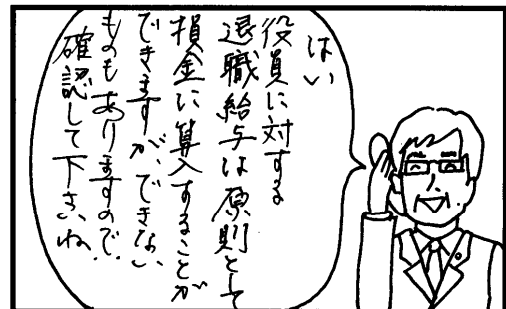 はい
役員に対する
退職給与は原則として
損金に算入することが
できますが、できない
ものもありますので、
確認して下さいね。